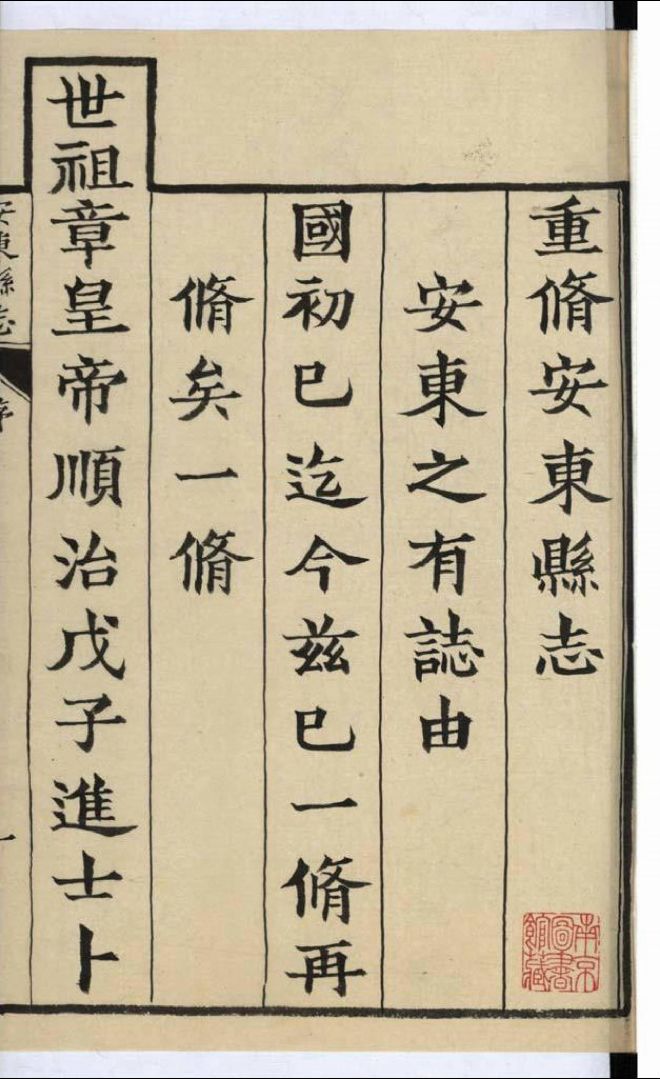 重脩安東縣志
安東之有誌由
國初巳迄今茲巳一脩再
脩矣一脩
世祖章皇帝順治戊子進士卜
安東縣志
序
一
南京圖書館藏